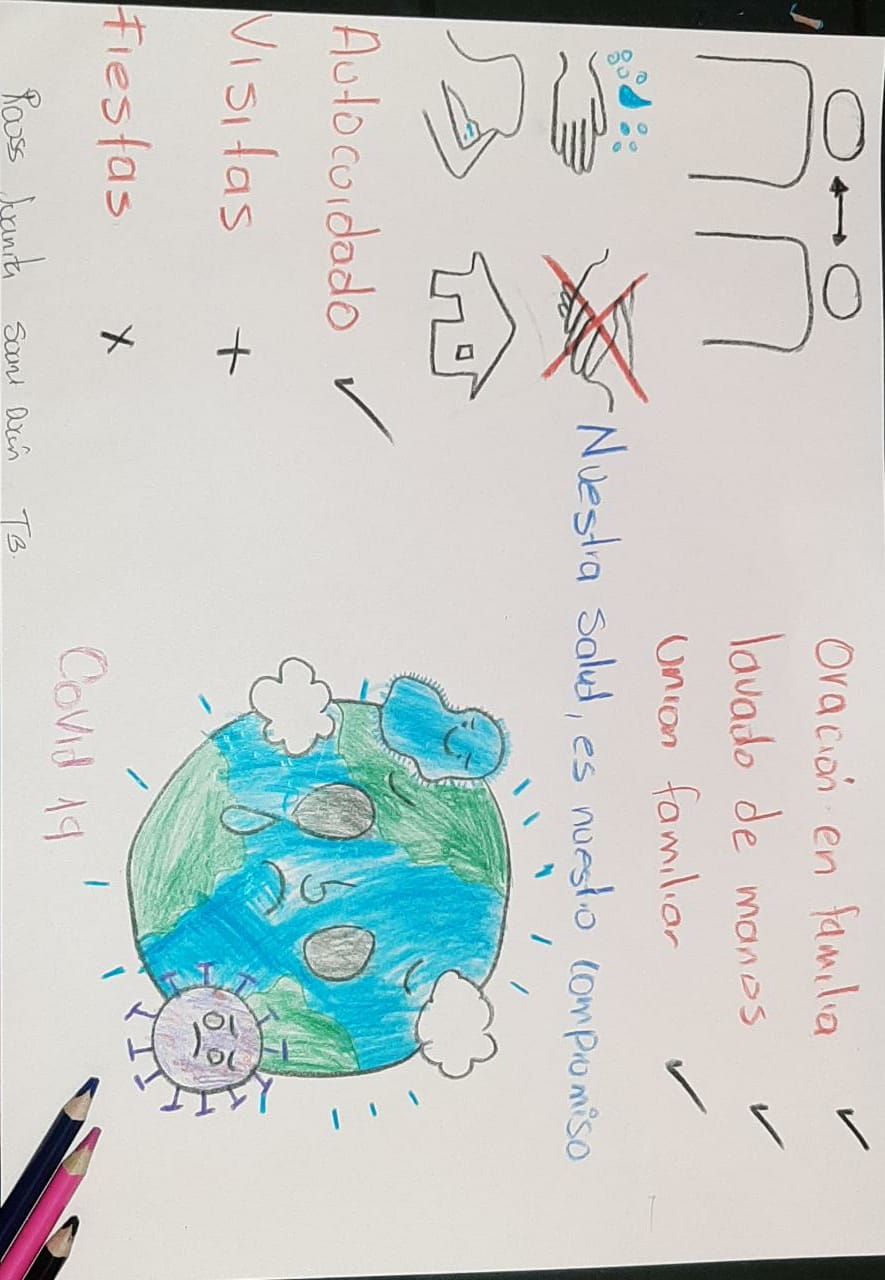 Oración en familia ✓
lavado de manos ✓
union familiar ✓
Nuestra Salud, es nuestro compromiso
Autocuidado ✓
Visitas +
fiestas x
Covid 19
Juanita